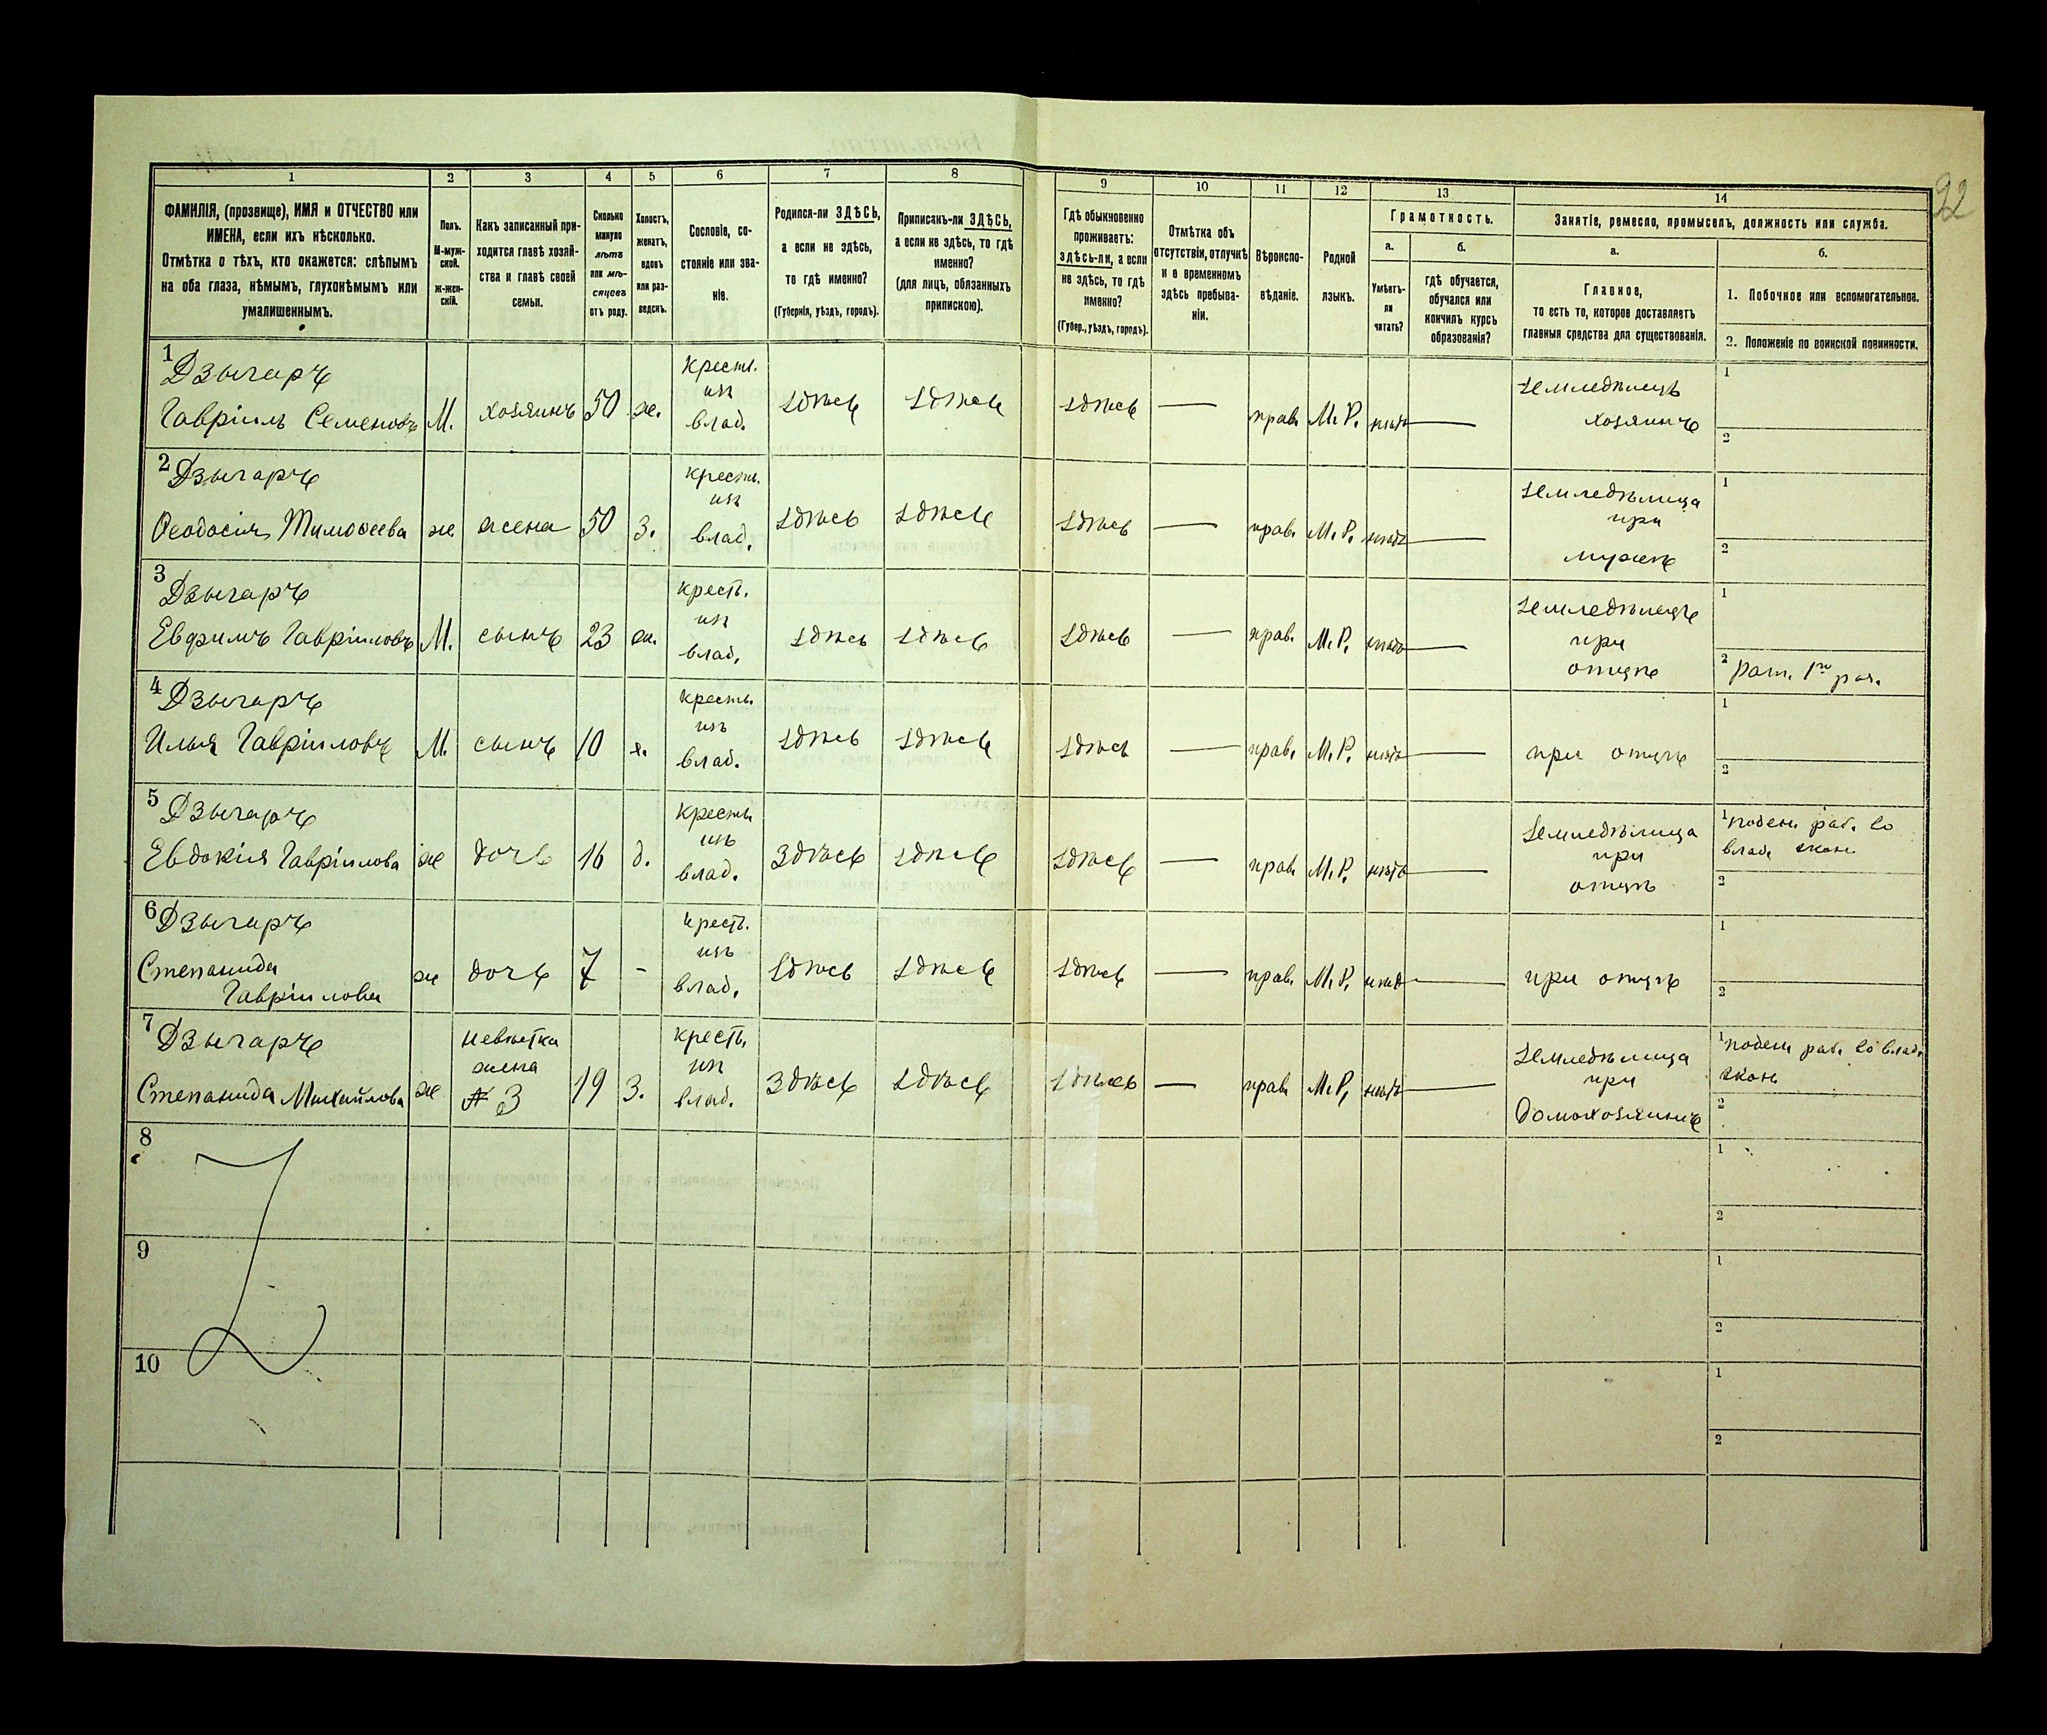 92
1 2 3 4 5 6 7 8 9 10 11 12 13 14
ФАМИЛІЯ, (прозвище), ИМЯ и ОТЧЕСТВО или
ИМЕНА, если ихъ нѣсколько.
Отмѣтка о тѣхъ, кто окажется: слѣпымъ
на оба глаза, нѣмымъ, глухонѣмымъ или
умалишеннымъ.
Полъ.
М-муж-
ской.
ж-жен-
скій.
Какъ записанный при-
ходится главѣ хозяй-
ства и главѣ своей
семьи.
Сколько
минуло
лѣтъ
или мѣ-
сяцевъ
отъ роду.
Холостъ,
женатъ,
вдовъ
или раз-
веденъ.
Сословіе, со-
стояніе или зва-
ніе.
Родился-ли ЗДѢСЬ,
а если не здѣсь,
то гдѣ именно?
(Губернія, уѣздъ, городъ).
Приписанъ-ли ЗДѢСЬ,
а если не здѣсь, то гдѣ
именно?
(для лицъ, обязанныхъ
припискою).
Гдѣ обыкновенно
проживаетъ:
здѣсь-ли, а если
не здѣсь, то гдѣ
именно?
(Губер., уѣздъ, городъ).
Отмѣтка объ
отсутствіи, отлучкѣ
и о временномъ
здѣсь пребыва-
ніи.
Вѣроиспо-
вѣданіе.
Родной
языкъ.
Грамотность.
а.
Умѣетъ-
ли
читать?
б.
гдѣ обучается,
обучался или
кончилъ курсъ
образованія?
Занятіе, ремесло, промыселъ, должность или служба.
а.
Главное,
то есть то, которое доставляетъ
главныя средства для существованія.
б.
1. Побочное или вспомогательное.
2. Положеніе по воинской повинности.
1 Дзыгаръ
Гавріилъ Семеновъ М. хозяинъ 50 ж.
Крестъ.
изъ
влад.
здѣсь здѣсь здѣсь — прав. М. Р. нѣтъ —
земледѣлецъ
хозяинъ
1
2
2 Дзыгаръ
Ѳеодосія Тимоѳеева ж жена 50 З.
Крестъ.
изъ
влад.
здѣсь здѣсь здѣсь — прав. М. Р. нѣтъ —
земледѣлица
при
мужѣ
1
2
3 Дзыгаръ
Евфимъ Гавріиловъ М. сынъ 23 ж.
Крестъ.
изъ
влад.
здѣсь здѣсь здѣсь — прав. М. Р. нѣтъ —
земледѣлецъ
при
отцѣ
1
2 Рат. 1го раз.
4 Дзыгаръ
Илья Гавріиловъ М. сынъ 10 х.
Крестъ.
изъ
влад.
здѣсь здѣсь здѣсь — прав. М. Р. нѣтъ —
при отцѣ
1
2
5 Дзыгаръ
Евдокія Гавріилова ж дочь 16 д.
Крестъ
изъ
влад.
Здѣсь здѣсь здѣсь — прав. М. Р. нѣтъ —
земледѣлица
при
отцѣ
1 поден. раб. во
влад. экон.
2
6 Дзыгаръ
Степанида
Гавріилова ж дочь 7 -
крестъ.
изъ
влад.
здѣсь здѣсь здѣсь — прав. М. Р. нѣтъ —
при отцѣ
1
2
7 Дзыгаръ
Степанида Михайлова ж
невѣстка
жена
№ 3
19 З.
крестъ.
изъ
влад.
Здѣсь здѣсь здѣсь — прав М. Р. нѣтъ —
земледѣлица
при
домохозяинѣ
1 поден раб. во влад.
экон
2
8
1
2
9
1
2
10
1
2